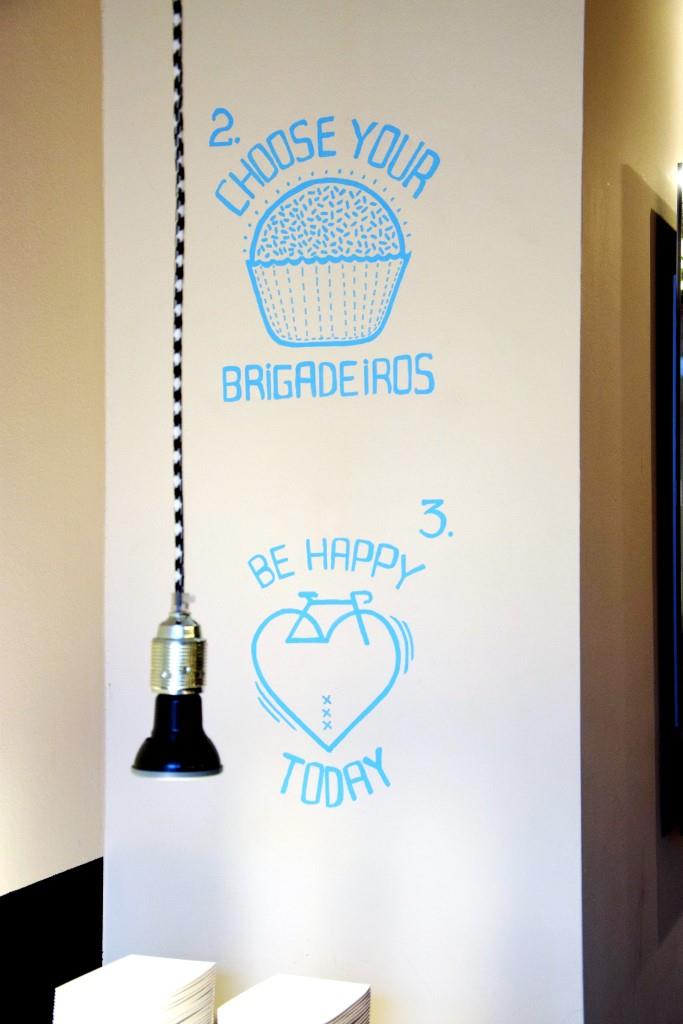 2.
CHOOSE YOUR
BRiGADEiROS
3.
BE HAPPY
xxx
TODAY